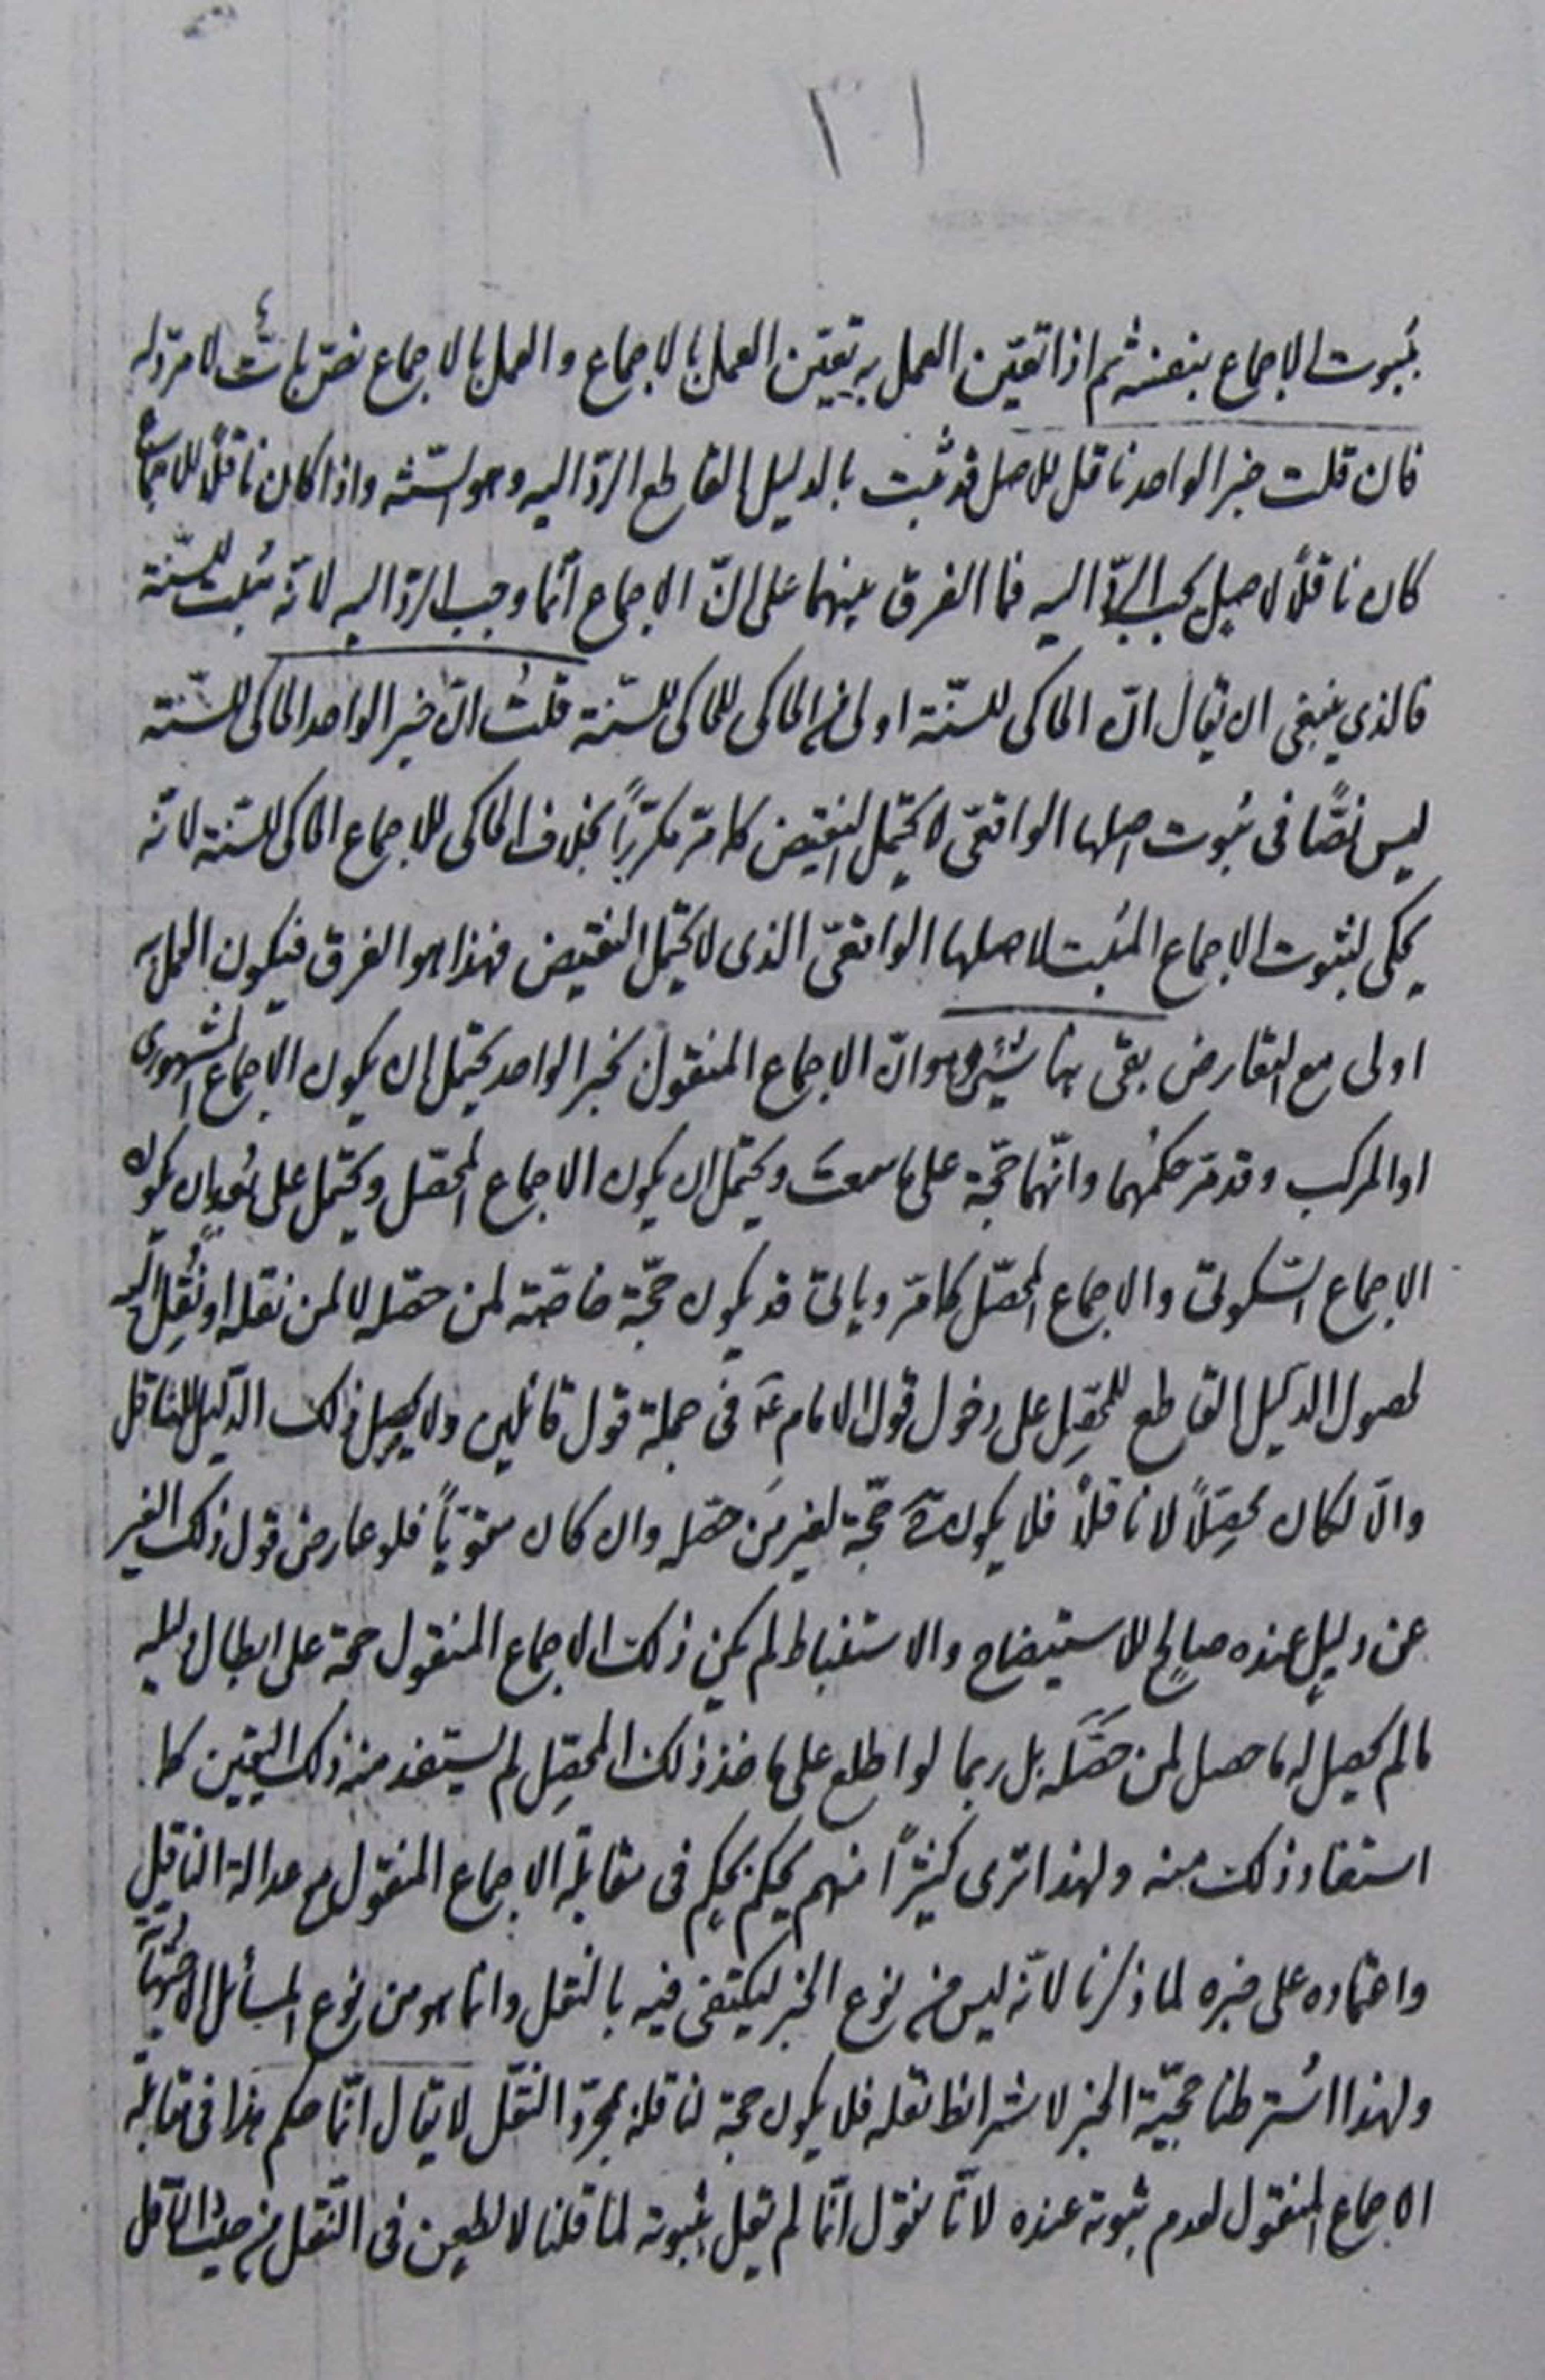 بثبوت الاجماع بنفسه ثم اذا تعيّن العمل به تعيّن العمل بالاجماع والعمل بالاجماع نصّ باتّ لا مردّ له
فان قلت خبر الواحد ناقل لاصل قد ثبت بالدليل القاطع الردّ اليه وهو السّنّة واذا كان ناقلاً للاجماع
كان ناقلاً لاصلٍ يجب الردّ اليه فما الفرق بينهما على انّ الاجماع انّما وجب الردّ اليه لانّه مُثبت للسّنّة
فالذي ينبغى ان يقال انّ الحاكى للسّنّة اولى من الحاكى للحاكى للسّنّة قلتُ انّ خبر الواحد الحاكى للسّنّة
ليس نصًّا فى ثبوت اصلها الواقعىّ لا يحتمل النقيض كما مرّ مكرّراً بخلاف الحاكى للاجماع الحاكى للسّنّة لانّه
يحكى لثبوت الاجماع المثبت لاصلها الواقعىّ الذى لا يحتمل النقيض فهذا هو الفرق فيكون العمل به
اولى مع التعارض بقى هنا شىء وهو انّ الاجماع المنقول بخبر الواحد يحتمل ان يكون الاجماع المشهورى
او المركب وقد مرّ حكمُهما وانّهما حجّة على ما سمعتَ ويحتمل ان يكون الاجماع المحصّل ويحتمل على بُعدٍ ان يكون
الاجماع السّكوتىّ والاجماع المحصّل كما مرّ ويأتى قد يكون حجّة خاصّة لمن حصّله لا لمن نقله او نُقِلَ اليه
لحصول الدّليل القاطع للمحصِّل على دخول قول الامام عَ فى جملة قول قائلين ولا يحصل ذلك الدّليل للناقل
والّا لكان محصِّلاً لا ناقلاً فلا يكون حجّة لغير مَن حصّله وان كان مقوّياً فلو عارض قول ذلك الغير
عن دليلٍ عنده صالحٍ للاستيضاح والاستنباط لم يكن ذلك الاجماع المنقول حجة على ابطال دليله
ما لم يحصل له ما حصل لمن حَصَّلَه بل ربما لو اطلع على مأخذ ذلك المحصِّل لم يستفد منه ذلك اليقين كما
استفاد ذلك منه ولهذا ترى كثيراً منهم يحكم بحكمٍ فى مقابلة الاجماع المنقول مع عدالة الناقل
واعتماده على خبره لما ذكرنا لانّه ليس من نوع الخبر ليكتفى فيه بالنقل وانما هو من نوع المسائل الاجتهاديّة
ولهذا اشترطنا حجيّة الخبر لاشرائط نقله فلا يكون حجة لناقله بمجرّد النقل لا يقال انّما حكم هذا فى مقابلة
الاجماع المنقول لعدم ثبوته عنده لانّا نقول انّما لم يقل بثبوته لما قلنا لا لطعن فى النّقل من حيث النّاقل